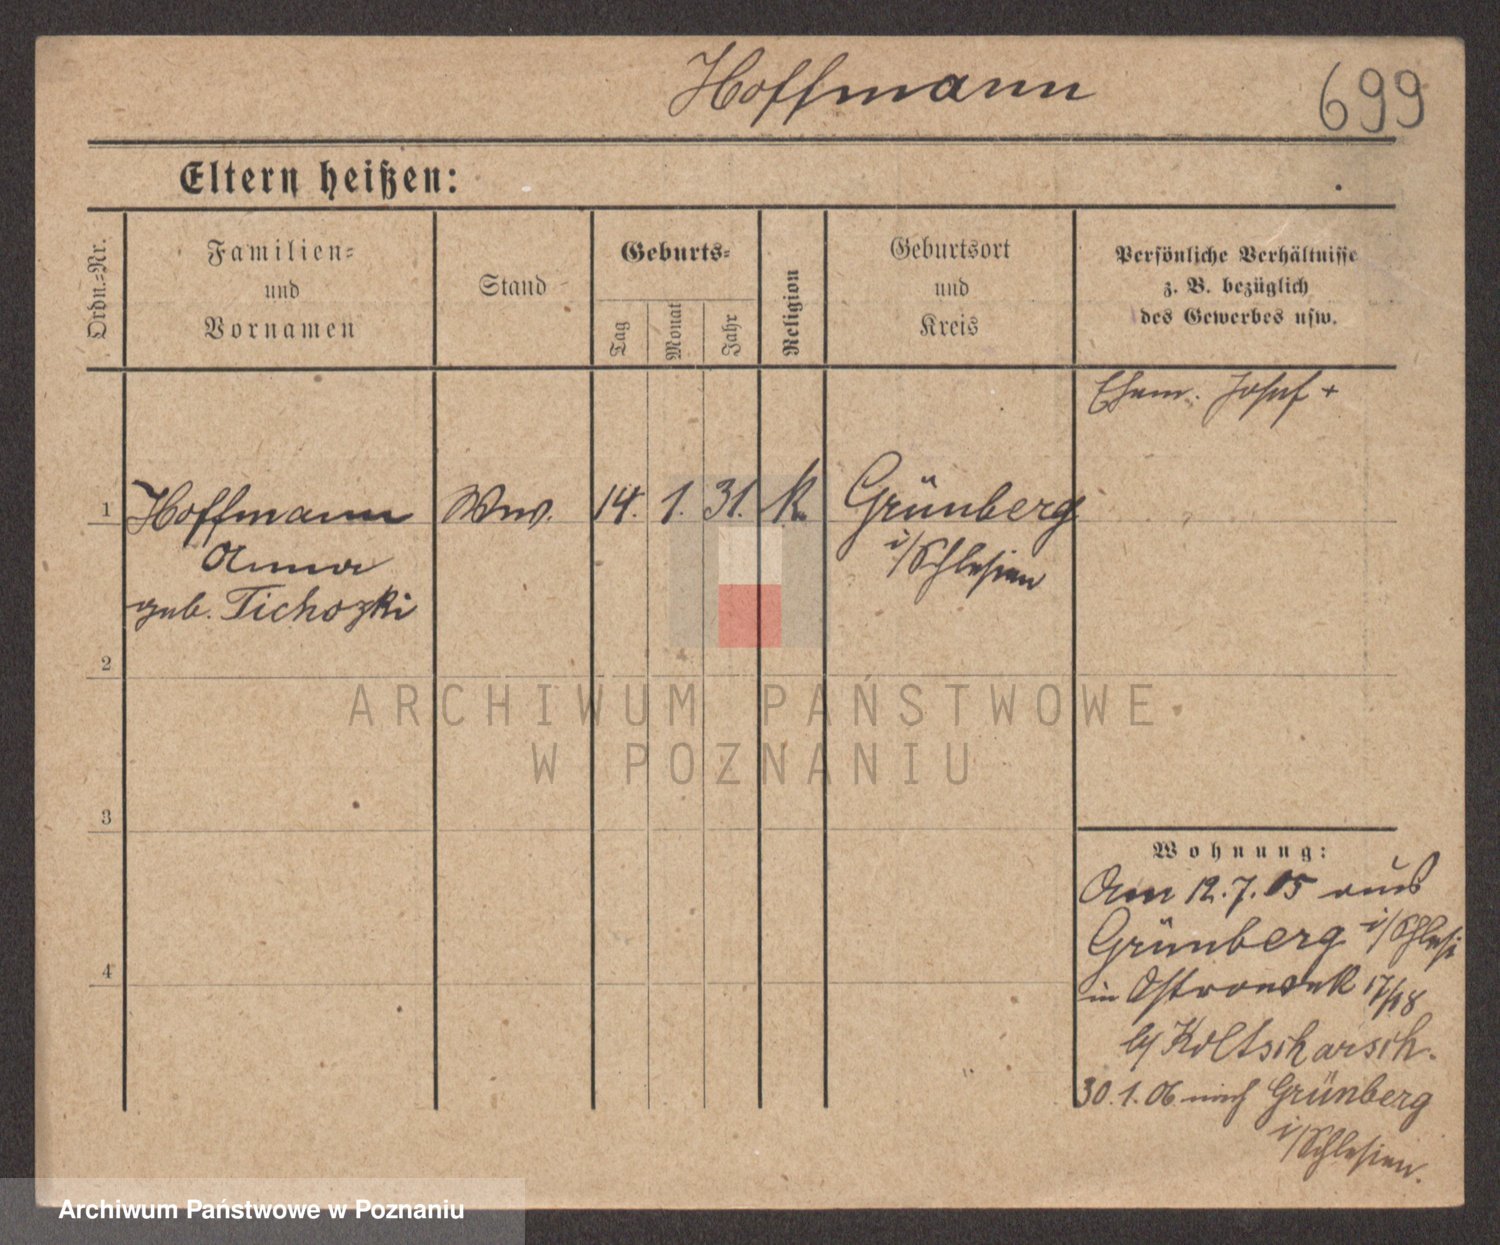 Hoffmann
699
Eltern heißen:
Ordn.=Nr.
Familien=
und
Vornamen
Stand
Geburts=
Tag
Monat
Jahr
Religion
Geburtsort
und
Kreis
Persönliche Verhältnisse
z. B. bezüglich
des Gewerbes usw.
Ehem. Josef +
1
Hoffmann
Anna
geb. Tichozki
Ww.
14.
1.
31.
k.
Grünberg
i/Schlesien
2
ARCHIWUM PAŃSTWOWE
W POZNANIU
3
4
Wohnung:
Am 12.7.05 aus
Grünberg i/Schlesi
in Ostrowek 17/18
b/ Koltscharsch.
30.1.06 nach Grünberg
i/Schlesien.
Archiwum Państwowe w Poznaniu